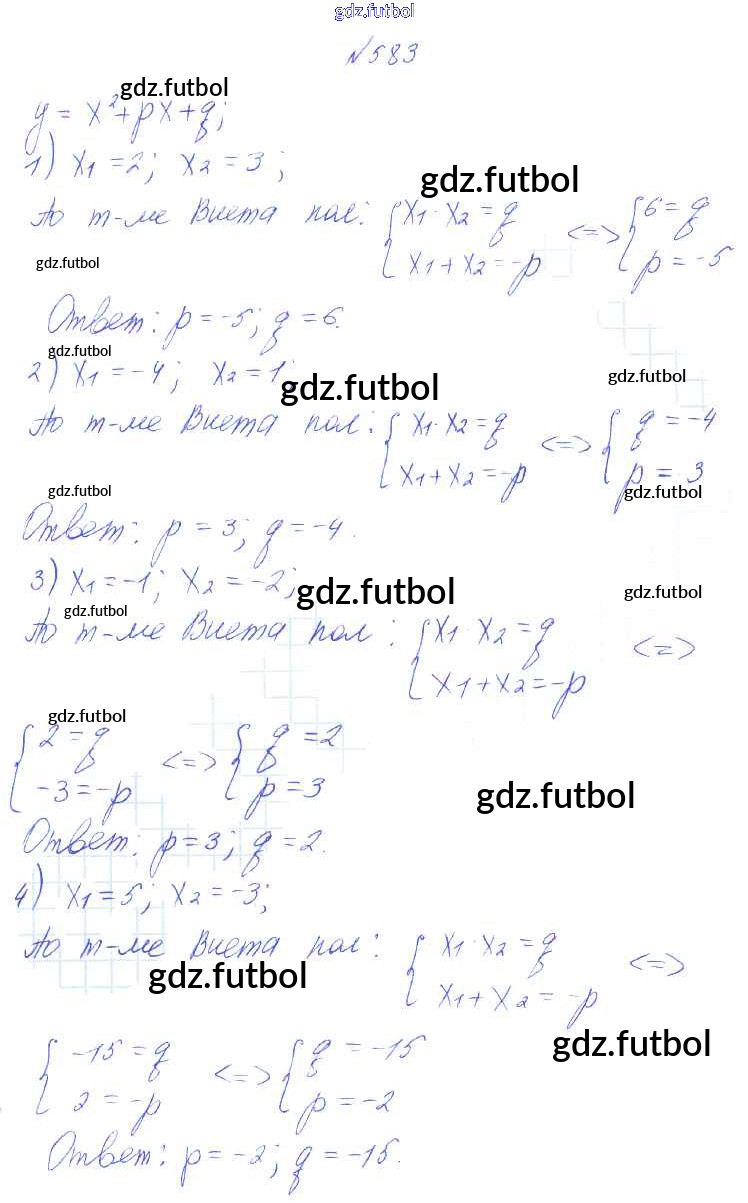 gdz.futbol
№583
gdz.futbol
y = x² + px + q;
1) x1 = 2; x2 = 3;
gdz.futbol
По т-ме Виета пол: { x1 · x2 = q <=> { 6 = q
x1 + x2 = -p p = -5
gdz.futbol
Ответ: p = -5; q = 6.
gdz.futbol
2) x1 = -4; x2 = 1;
gdz.futbol gdz.futbol
По т-ме Виета пол: { x1 · x2 = q <=> { q = -4
x1 + x2 = -p p = 3
gdz.futbol gdz.futbol
Ответ: p = 3; q = -4.
3) x1 = -1; x2 = -2;
gdz.futbol gdz.futbol
gdz.futbol
По т-ме Виета пол: { x1 · x2 = q <=>
x1 + x2 = -p
gdz.futbol
{ 2 = q <=> { q = 2
-3 = -p p = 3
gdz.futbol
Ответ: p = 3; q = 2.
4) x1 = 5; x2 = -3;
По т-ме Виета пол: { x1 · x2 = q <=>
gdz.futbol
x1 + x2 = -p
gdz.futbol
{ -15 = q <=> { q = -15
2 = -p p = -2
Ответ: p = -2; q = -15.